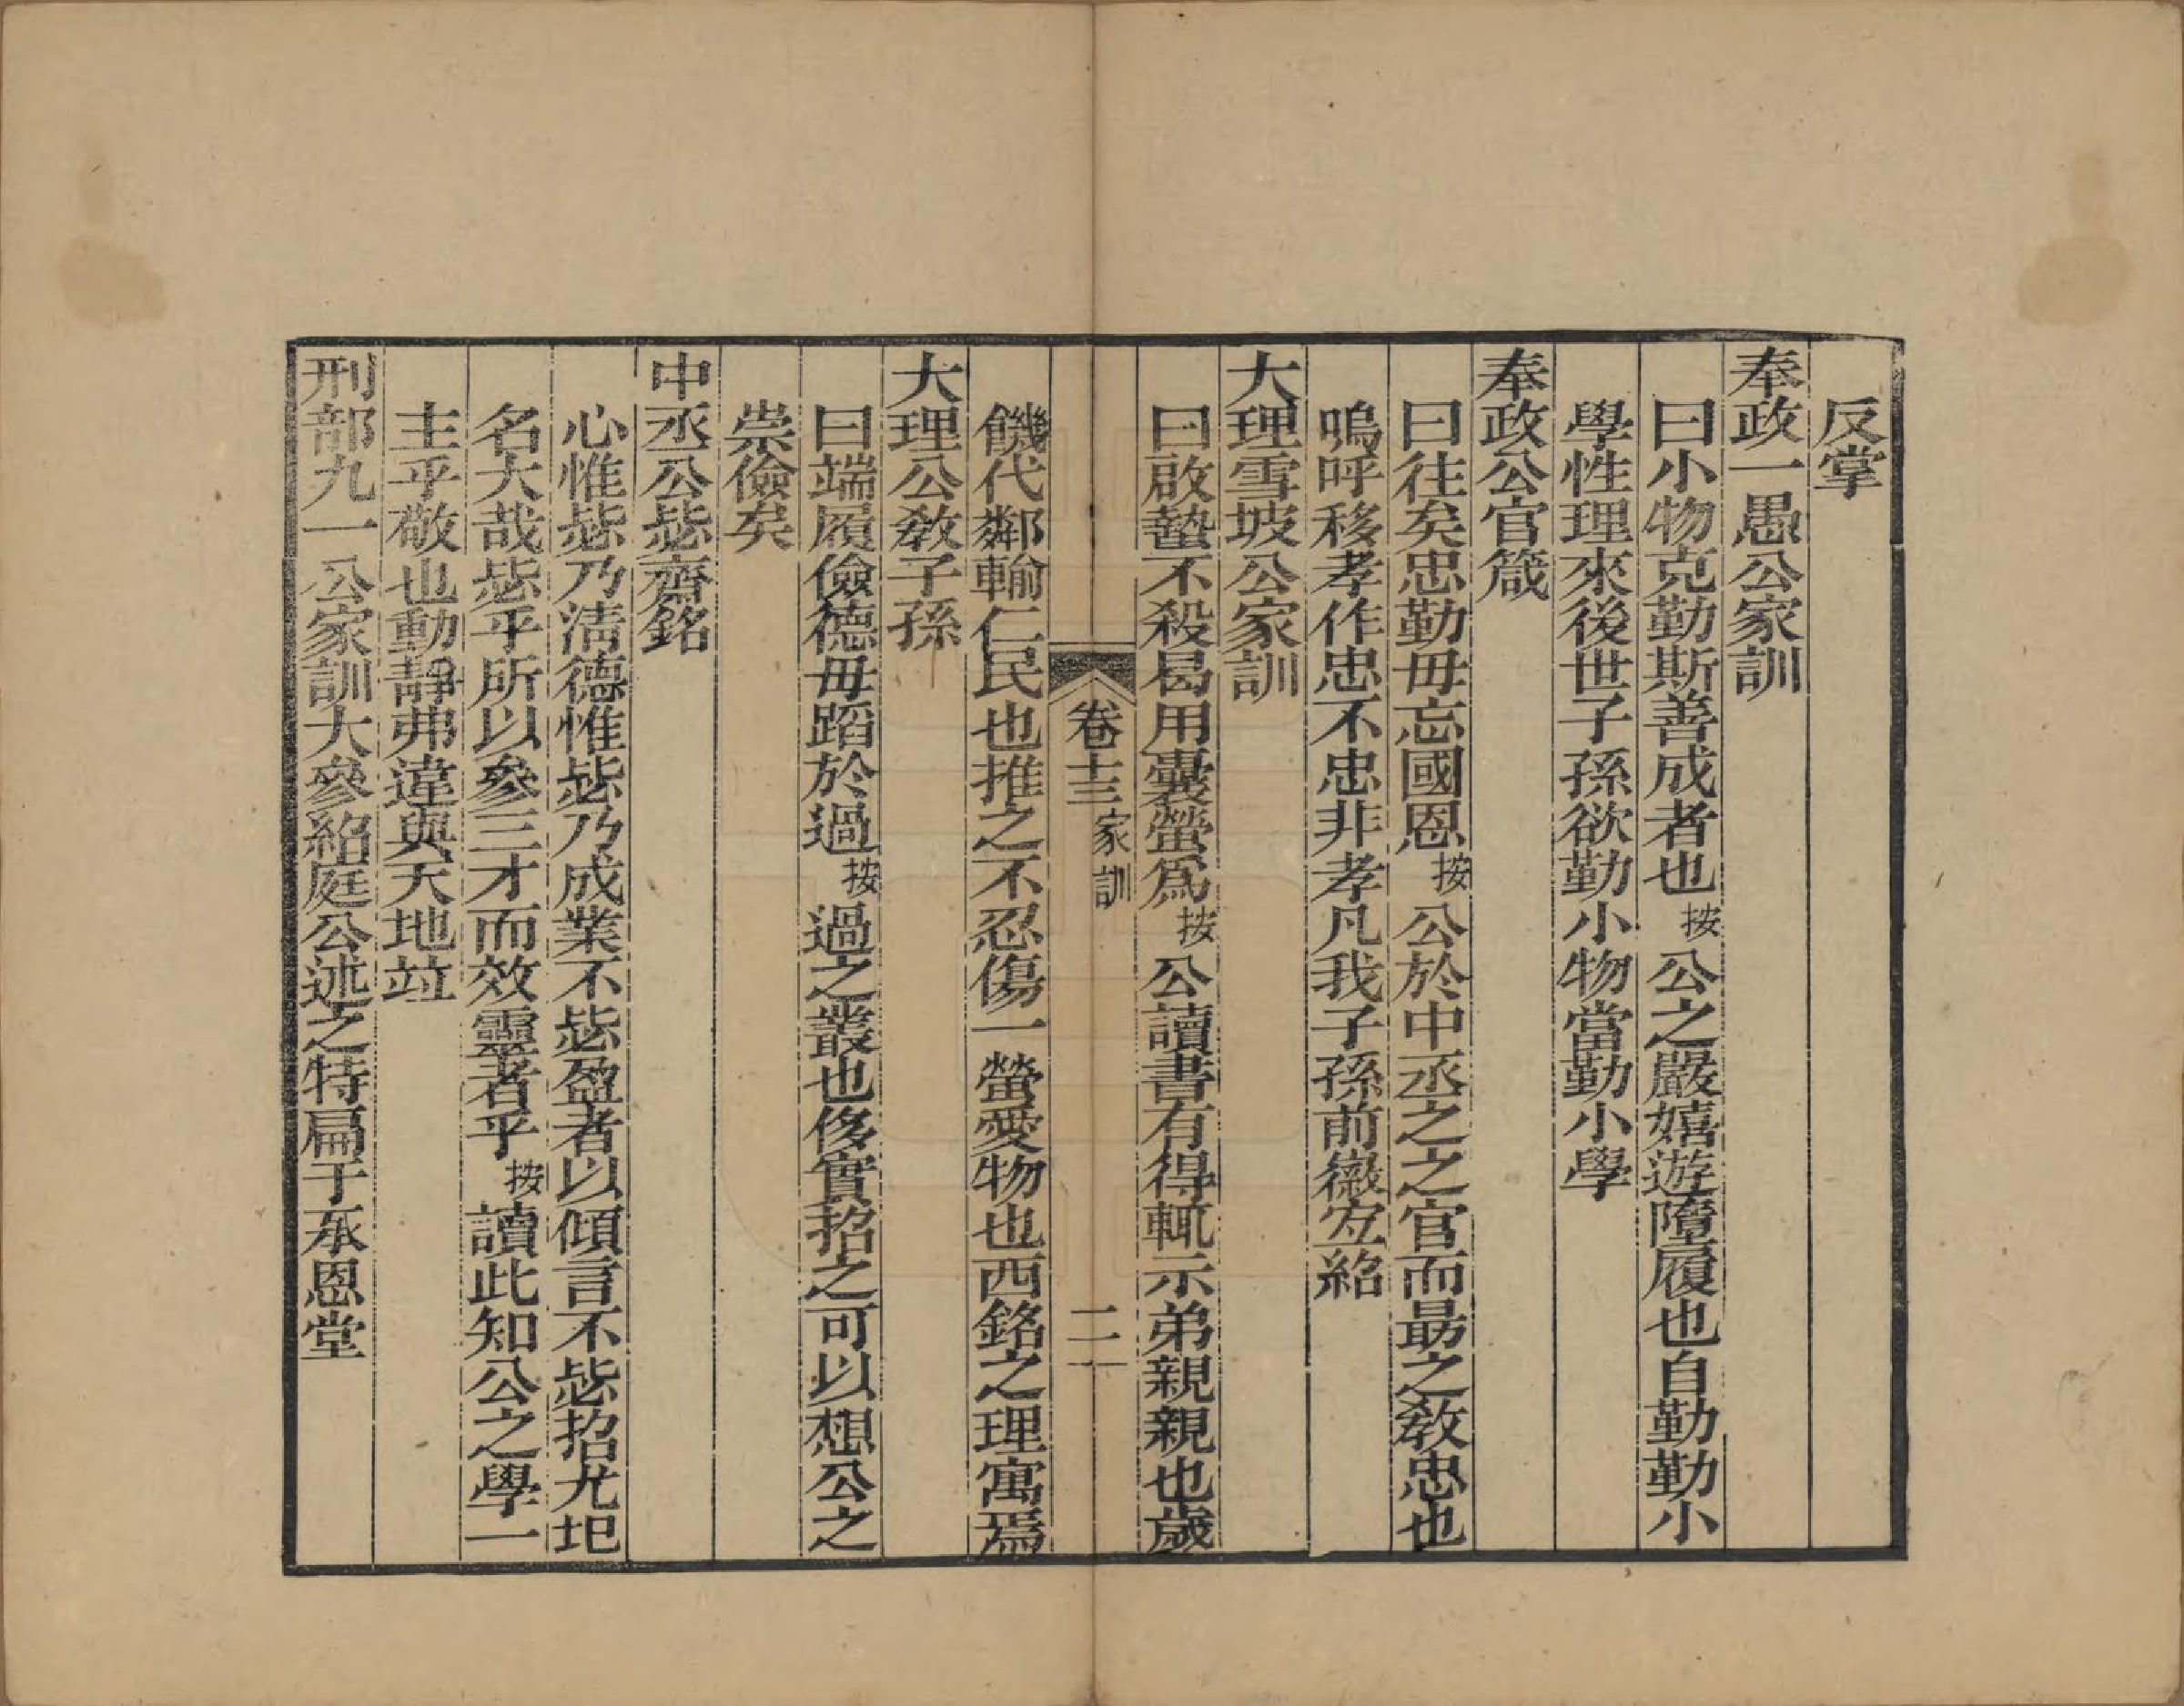 反掌
奉政一愚公家訓
曰小物克勤斯善成者也按公之嚴嬉遊隳履也自勤勤小
學性理來後世子孫欲勤小物當勤小學
奉政公官箴
曰往矣忠勤毋忘國恩按公於中丞之之官而最之敎忠也
嗚呼移孝作忠不忠非孝凡我子孫前徽宜紹
大理雪坡公家訓
曰啟蟄不殺曷用囊螢爲按公讀書有得輒示弟親親也歲
卷十三 家訓 二
饑代鄰輸仁民也推之不忍傷一螢愛物也西銘之理寓焉
大理公敎子孫
曰端履儉德毋蹈於過按過之叢也侈實招之可以想公之
崇儉矣
中丞公毖齋銘
心惟毖乃淸德惟毖乃成業不毖盈者以傾言不毖招尤圯
名大哉毖乎所以參三才而效靈者乎按讀此知公之學一
主乎敬也動靜弗違與天地竝
刑部九一公家訓大參紹庭公述之特扁于承恩堂